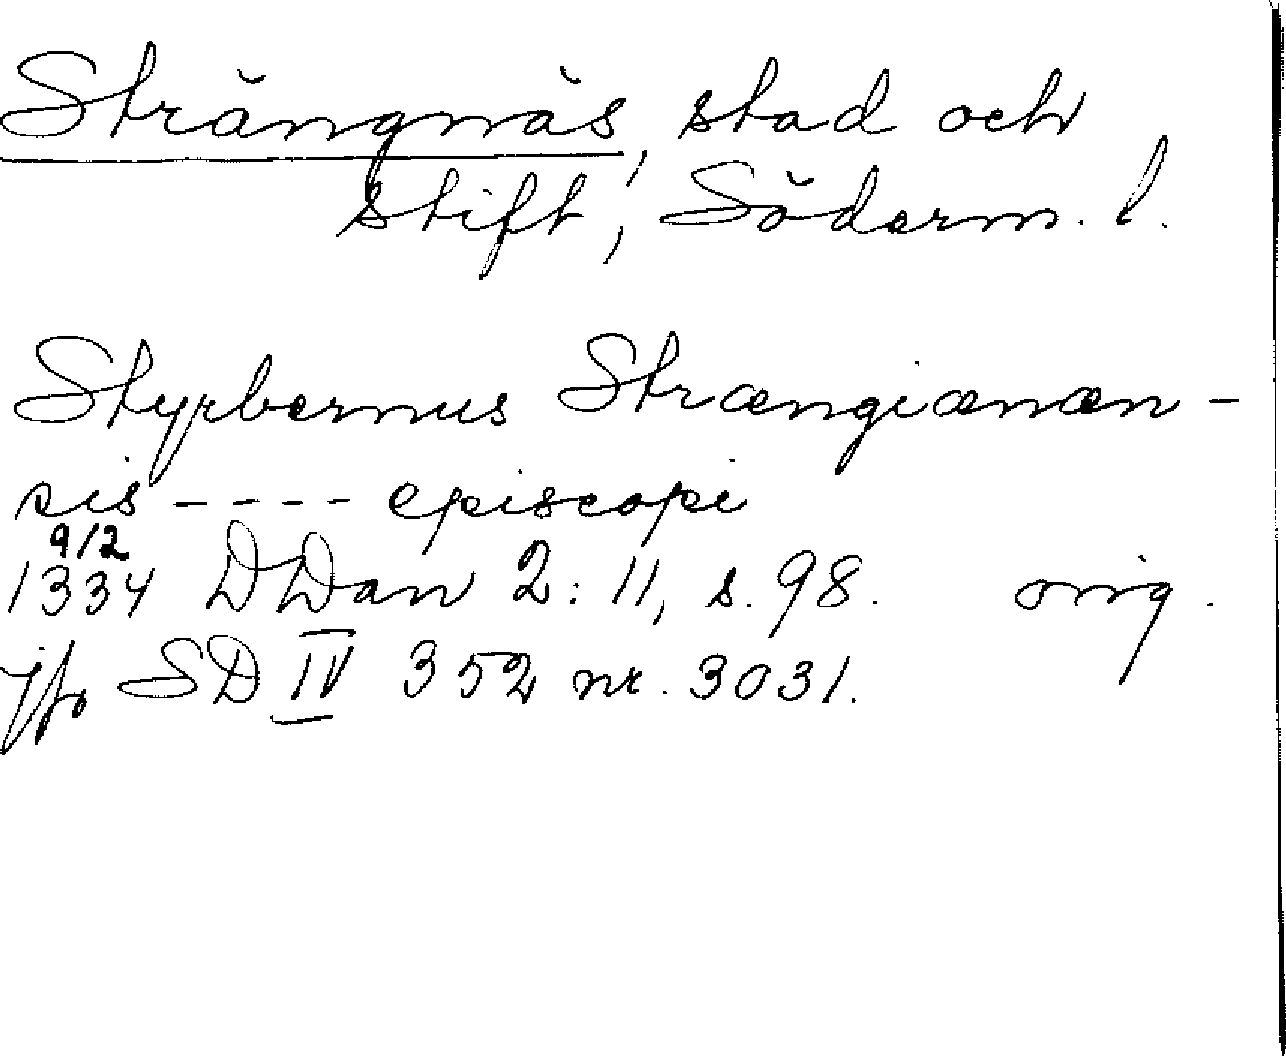 Strängnäs, stad och
stift, Söderm. l.
Styrbernus Strængiænæn-
sis ---- episcopi
9/2
1334 DDan 2: 11, s. 98. orig.
jfr SD IV 352 nr. 3031.